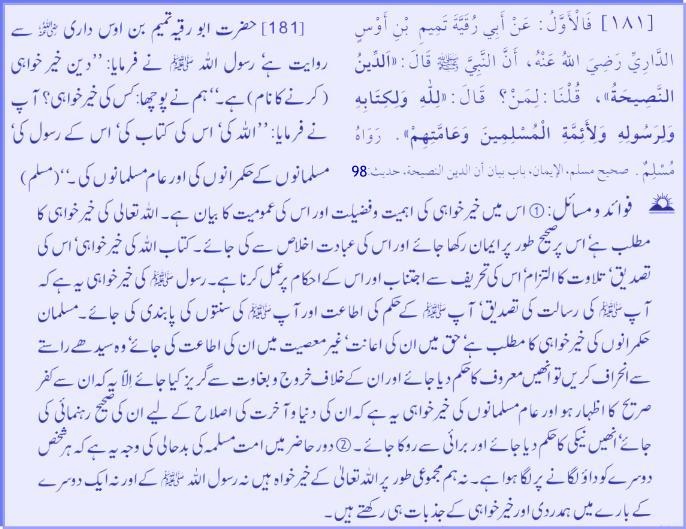 [١٨١] فَالْأَوَّلُ: عَنْ أَبِي رُقَيَّةَ تَمِيمِ بْنِ أَوْسٍ
الدَّارِيِّ رَضِيَ اللهُ عَنْهُ، أَنَّ النَّبِيَّ ﷺ قَالَ: «الدِّينُ
النَّصِيحَةُ»، قُلْنَا: لِمَنْ؟ قَالَ: «لِلّٰهِ وَلِكِتَابِهِ
وَلِرَسُولِهِ وَلِأَئِمَّةِ الْمُسْلِمِينَ وَعَامَّتِهِمْ». رَوَاهُ
مُسْلِمٌ. صحيح مسلم، الإيمان، باب بيان أن الدين النصيحة، حديث:98
[181] حضرت ابو رقیہ تمیم بن اوس داری ؓ سے
روایت ہے، رسول اللہ ﷺ نے فرمایا: ’’دین خیر خواہی
(کرنے کا نام) ہے۔‘‘ ہم نے پوچھا: کس کی خیر خواہی؟ آپ
نے فرمایا: ’’اللہ کی، اس کی کتاب کی، اس کے رسول کی،
مسلمانوں کے حکمرانوں کی اور عام مسلمانوں کی۔‘‘ (مسلم)
فوائد و مسائل: ① اس میں خیر خواہی کی اہمیت و فضیلت اور اس کی عمومیت کا بیان ہے۔ اللہ تعالیٰ کی خیر خواہی کا
مطلب ہے، اس پر صحیح طور پر ایمان رکھا جائے اور اس کی عبادت اخلاص سے کی جائے۔ کتاب اللہ کی خیر خواہی، اس کی
تصدیق، تلاوت کا التزام، اس کی تحریف سے اجتناب اور اس کے احکام پر عمل کرنا ہے۔ رسول ﷺ کی خیر خواہی یہ ہے کہ
آپ ﷺ کی رسالت کی تصدیق، آپ ﷺ کے حکم کی اطاعت اور آپ ﷺ کی سنتوں کی پابندی کی جائے۔ مسلمان
حکمرانوں کی خیر خواہی کا مطلب ہے، حق میں ان کی اعانت، غیر معصیت میں ان کی اطاعت کی جائے، وہ سیدھے راستے
سے انحراف کریں تو انھیں معروف کا حکم دیا جائے اور ان کے خلاف خروج و بغاوت سے گریز کیا جائے الّا یہ کہ ان سے کفر
صریح کا اظہار ہو اور عام مسلمانوں کی خیر خواہی یہ ہے کہ ان کی دنیا و آخرت کی اصلاح کے لیے ان کی صحیح رہنمائی کی
جائے، انھیں نیکی کا حکم دیا جائے اور برائی سے روکا جائے۔ ② دور حاضر میں امت مسلمہ کی بدحالی کی وجہ یہ ہے کہ ہر شخص
دوسرے کو داؤ لگانے پر لگا ہوا ہے۔ نہ ہم مجموعی طور پر اللہ تعالیٰ کے خیر خواہ ہیں نہ رسول اللہ ﷺ کے اور نہ ایک دوسرے
کے بارے میں ہمدردی اور خیر خواہی کے جذبات ہی رکھتے ہیں۔